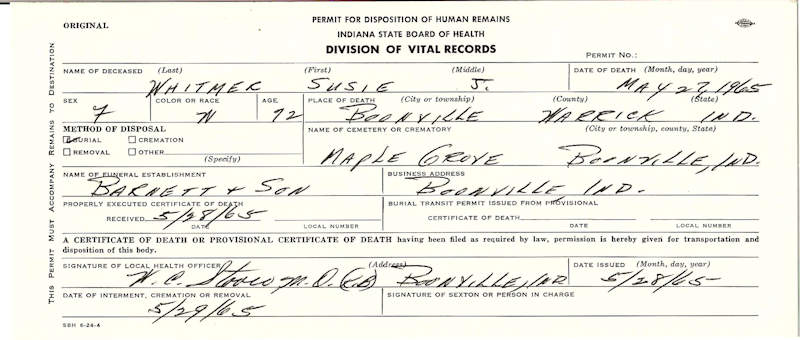 ORIGINAL
PERMIT FOR DISPOSITION OF HUMAN REMAINS
INDIANA STATE BOARD OF HEALTH
DIVISION OF VITAL RECORDS
PERMIT NO.:
THIS PERMIT MUST ACCOMPANY REMAINS TO DESTINATION
NAME OF DECEASED (Last) (First) (Middle) DATE OF DEATH (Month, day, year)
WHITMER SUSIE J. MAY 27, 1965
SEX COLOR OR RACE AGE PLACE OF DEATH (City or township) (County) (State)
F W 72 BOONVILLE WARRICK IND.
METHOD OF DISPOSAL NAME OF CEMETERY OR CREMATORY (City or township, county, State)
BURIAL CREMATION
REMOVAL OTHER (Specify) MAPLE GROVE BOONVILLE, IND.
NAME OF FUNERAL ESTABLISHMENT BUSINESS ADDRESS
BARNETT + SON BOONVILLE IND.
PROPERLY EXECUTED CERTIFICATE OF DEATH BURIAL TRANSIT PERMIT ISSUED FROM PROVISIONAL
RECEIVED 5/28/65 CERTIFICATE OF DEATH
DATE LOCAL NUMBER DATE LOCAL NUMBER
A CERTIFICATE OF DEATH OR PROVISIONAL CERTIFICATE OF DEATH having been filed as required by law, permission is hereby given for transportation and
disposition of this body.
SIGNATURE OF LOCAL HEALTH OFFICER (Address) DATE ISSUED (Month, day, year)
W. C. M.D. BOONVILLE, IND 5/28/65
DATE OF INTERMENT, CREMATION OR REMOVAL SIGNATURE OF SEXTON OR PERSON IN CHARGE
5/29/65
SBH 6-24-4